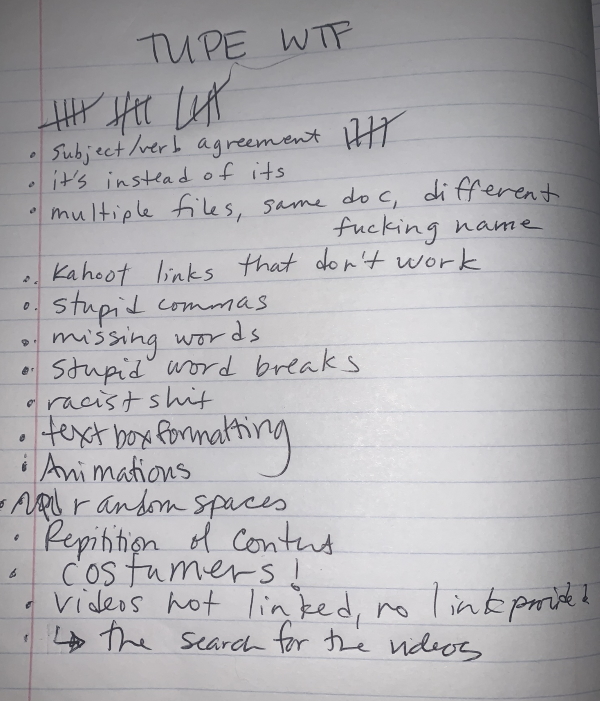 TUPE WTF
• subject/verb agreement
• it's instead of its
• multiple files, same doc, different
fucking name
• Kahoot links that don't work
• stupid commas
• missing words
• stupid word breaks
• racist shit
• text box formatting
• Animations
• random spaces
• Repitition of Content
• costumers!
• videos not linked, no link provided
• ↳ the search for the videos